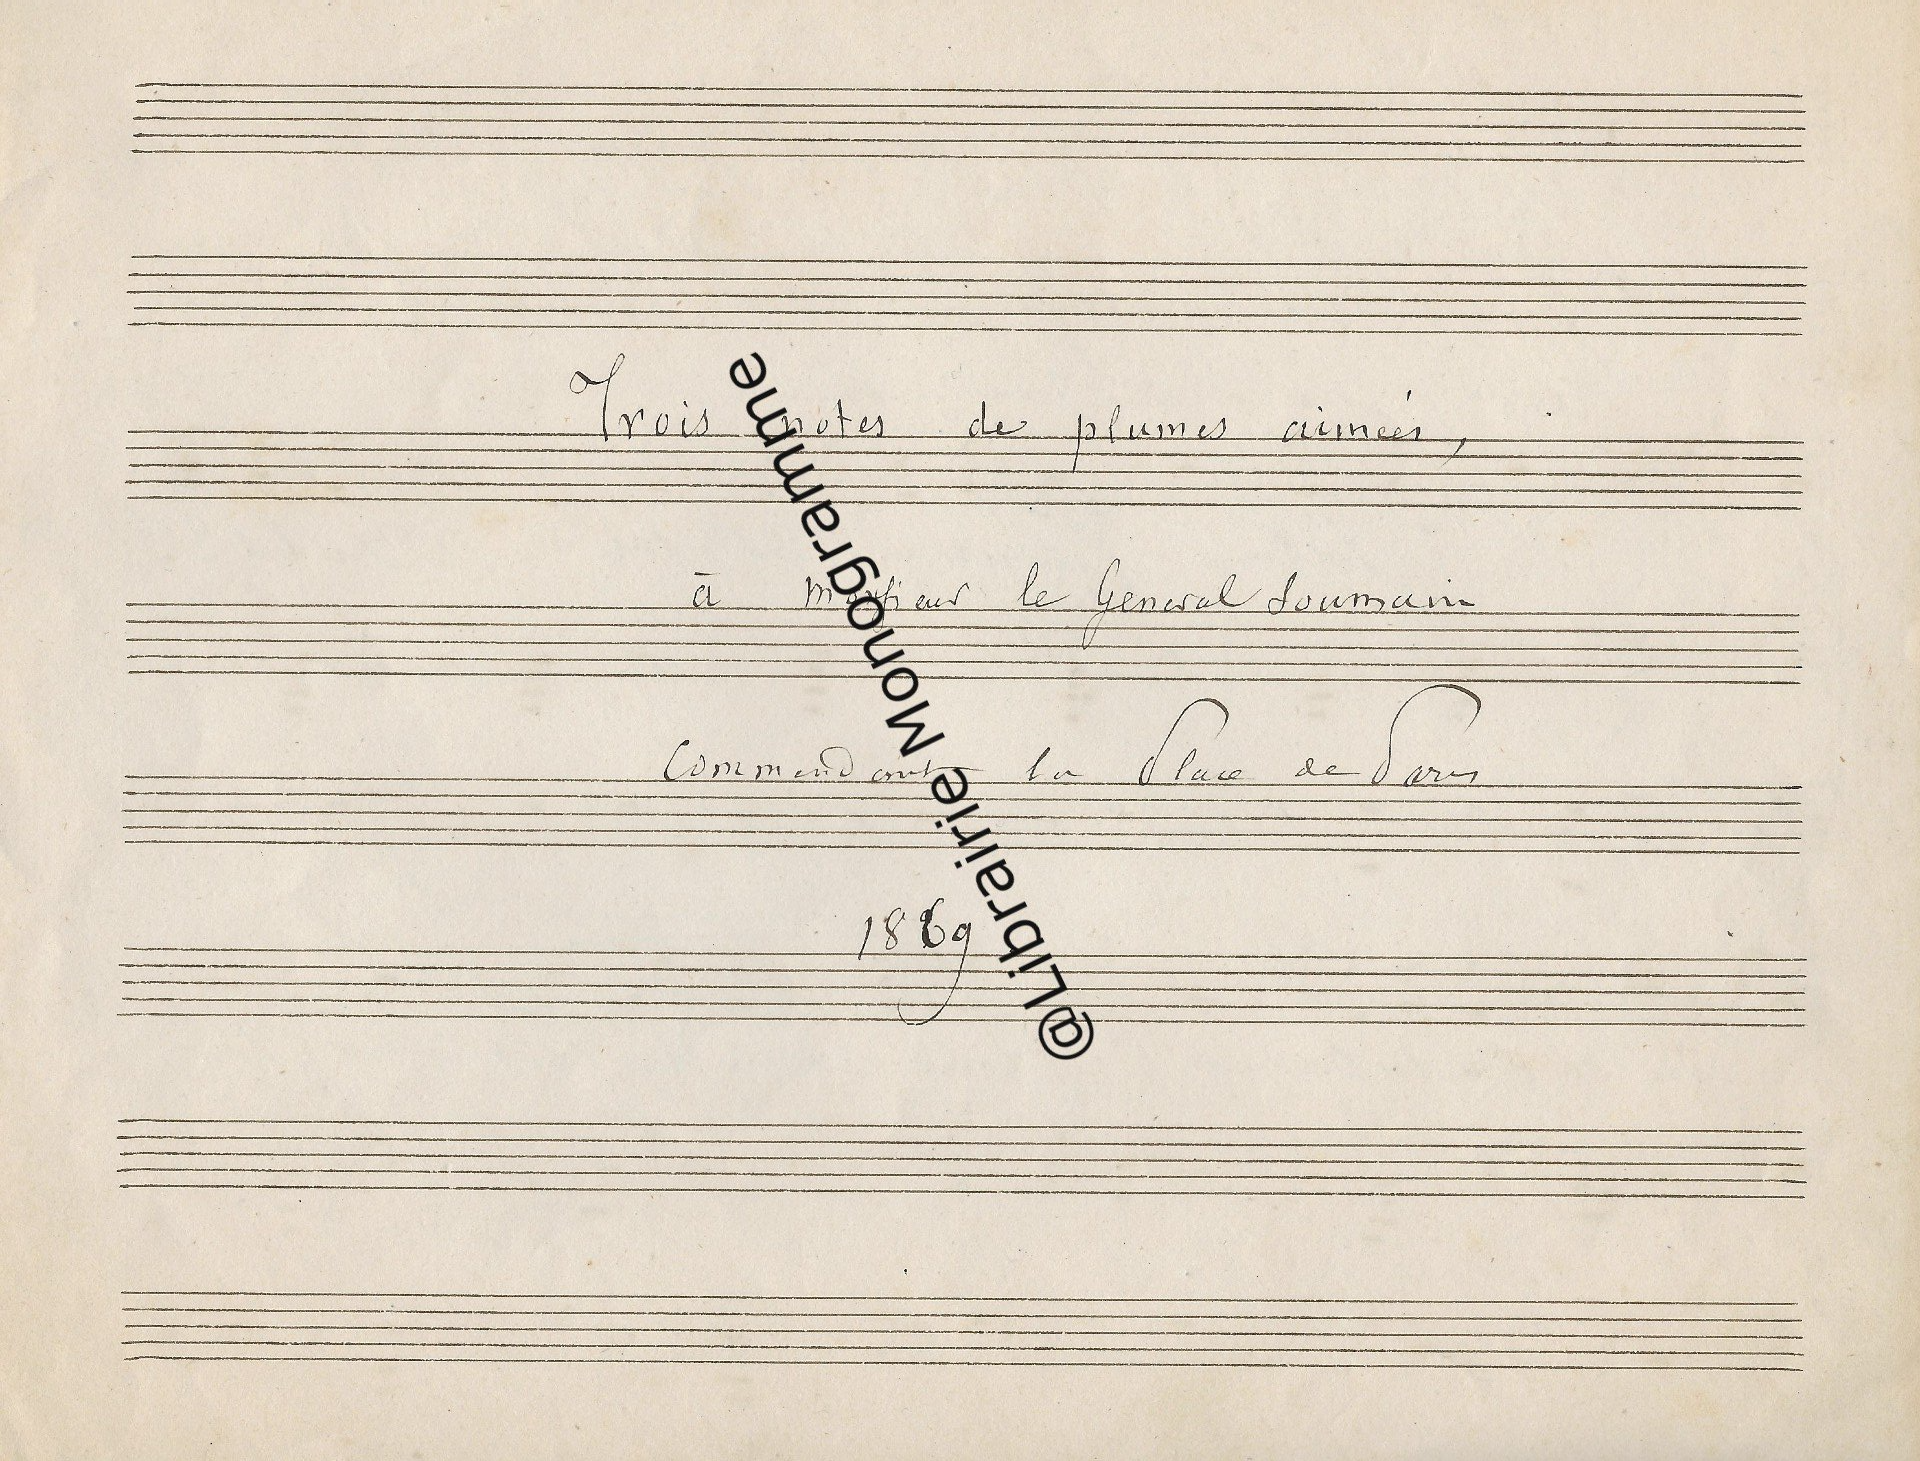 Trois notes de plumes aimées,
à Monsieur le General Soumain
Commendant la Place de Paris
1869
@Librairie Monogramme